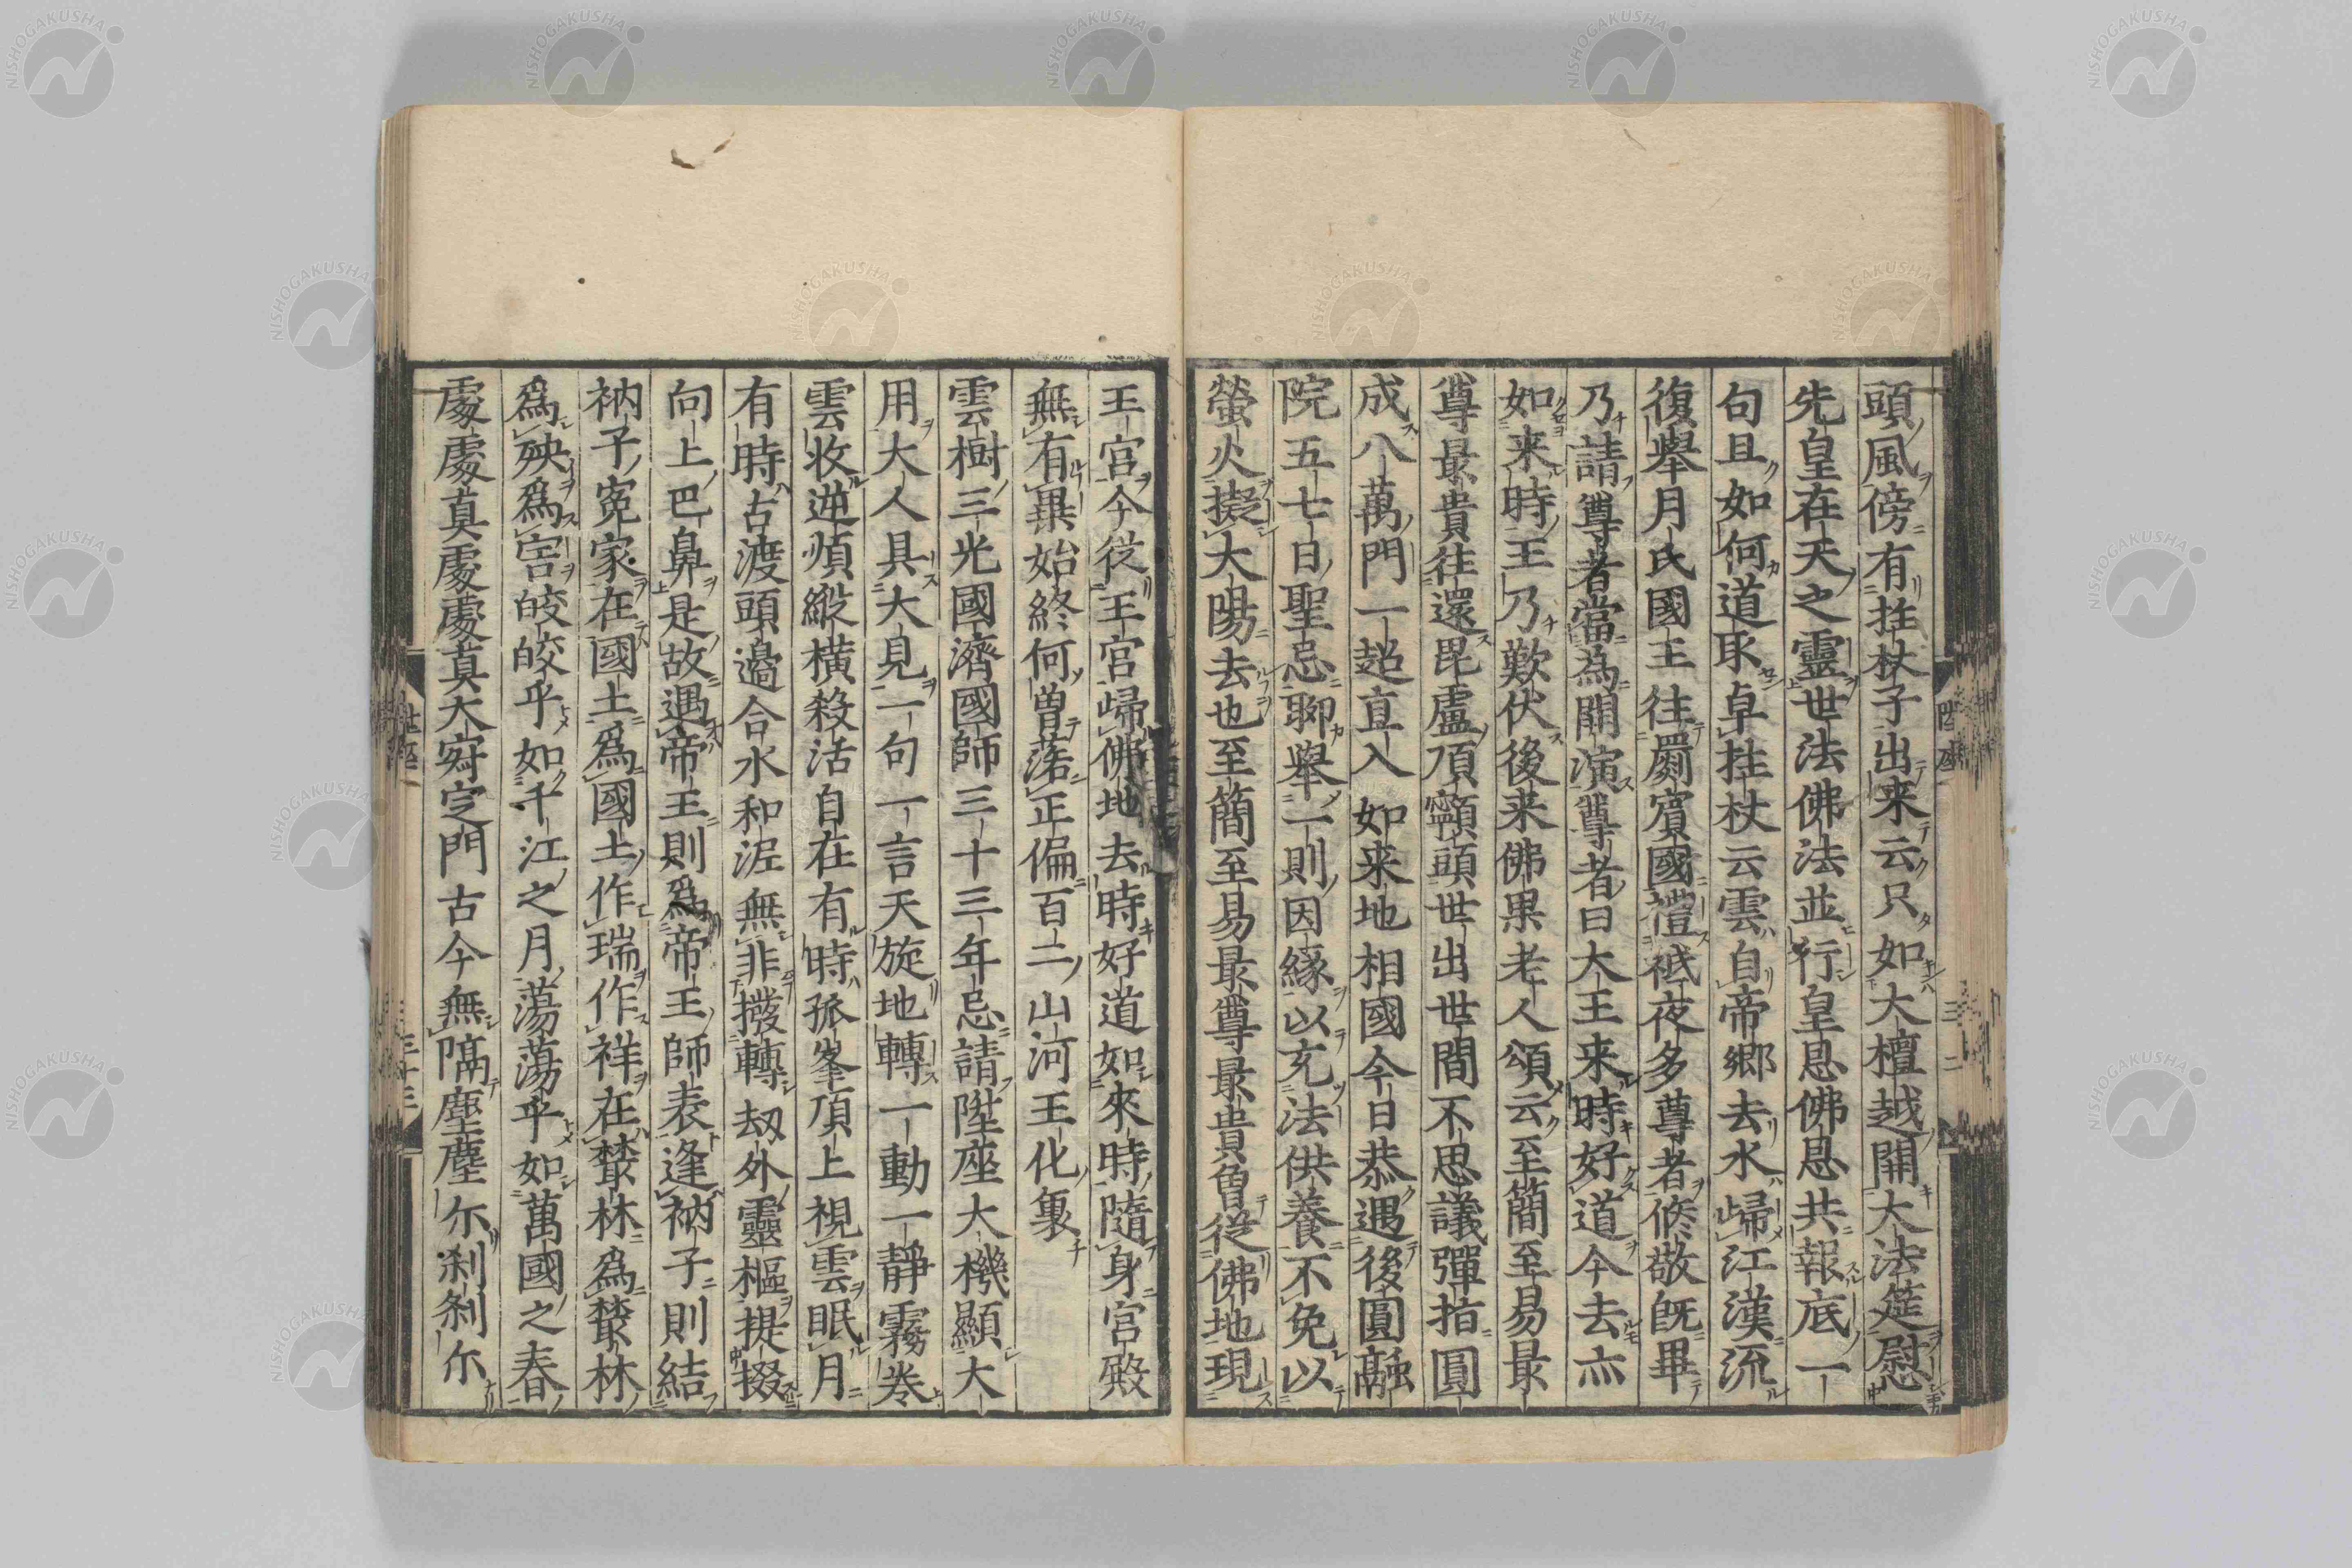 頭風傍有拄杖子出来云只如大檀越開大法筵慰
先皇在天之靈世法佛法並行皇恩佛恩共報底一
句且如何道取卓拄杖云雲自帝鄉去水歸江漢流
復舉月氏國王往罽賓國禮祗夜多尊者修敬既畢
乃請尊者當為開演尊者曰大王来時好道今去亦
如来時王乃歎伏後来佛果老人頌云至簡至易最
尊最貴往還毘盧頂𩕳頭世出世間不思議彈指圓
成八萬門一超直入如来地相國今日恭遇後圓融
院五七日聖忌聊舉一則因緣以充法供養不免以
螢火擬大陽去也至簡至易最尊最貴曾從佛地現
王宮今從王宮歸佛地去時好道如來時隨身宮殿
無有異始終何曾落正偏百二山河王化裏
雲樹三光國濟國師三十三年忌請陞座大機顯大
用大人具大見一句一言天旋地轉一動一靜霧卷
雲收逆順縱横殺活自在有時孤峯頂上視雲眠月
有時古渡頭邊合水和泥無非撥轉劫外靈樞提掇
向上巴鼻是故遇帝王則爲帝王師表逢衲子則結
衲子冤家在國土爲國土作瑞作祥在叢林爲叢林
爲殃爲害皎皎乎如千江之月蕩蕩乎如萬國之春
處處真處處真大寂定門古今無隔塵塵尓刹刹尓
陞座
三十三
NISHOGAKUSHA